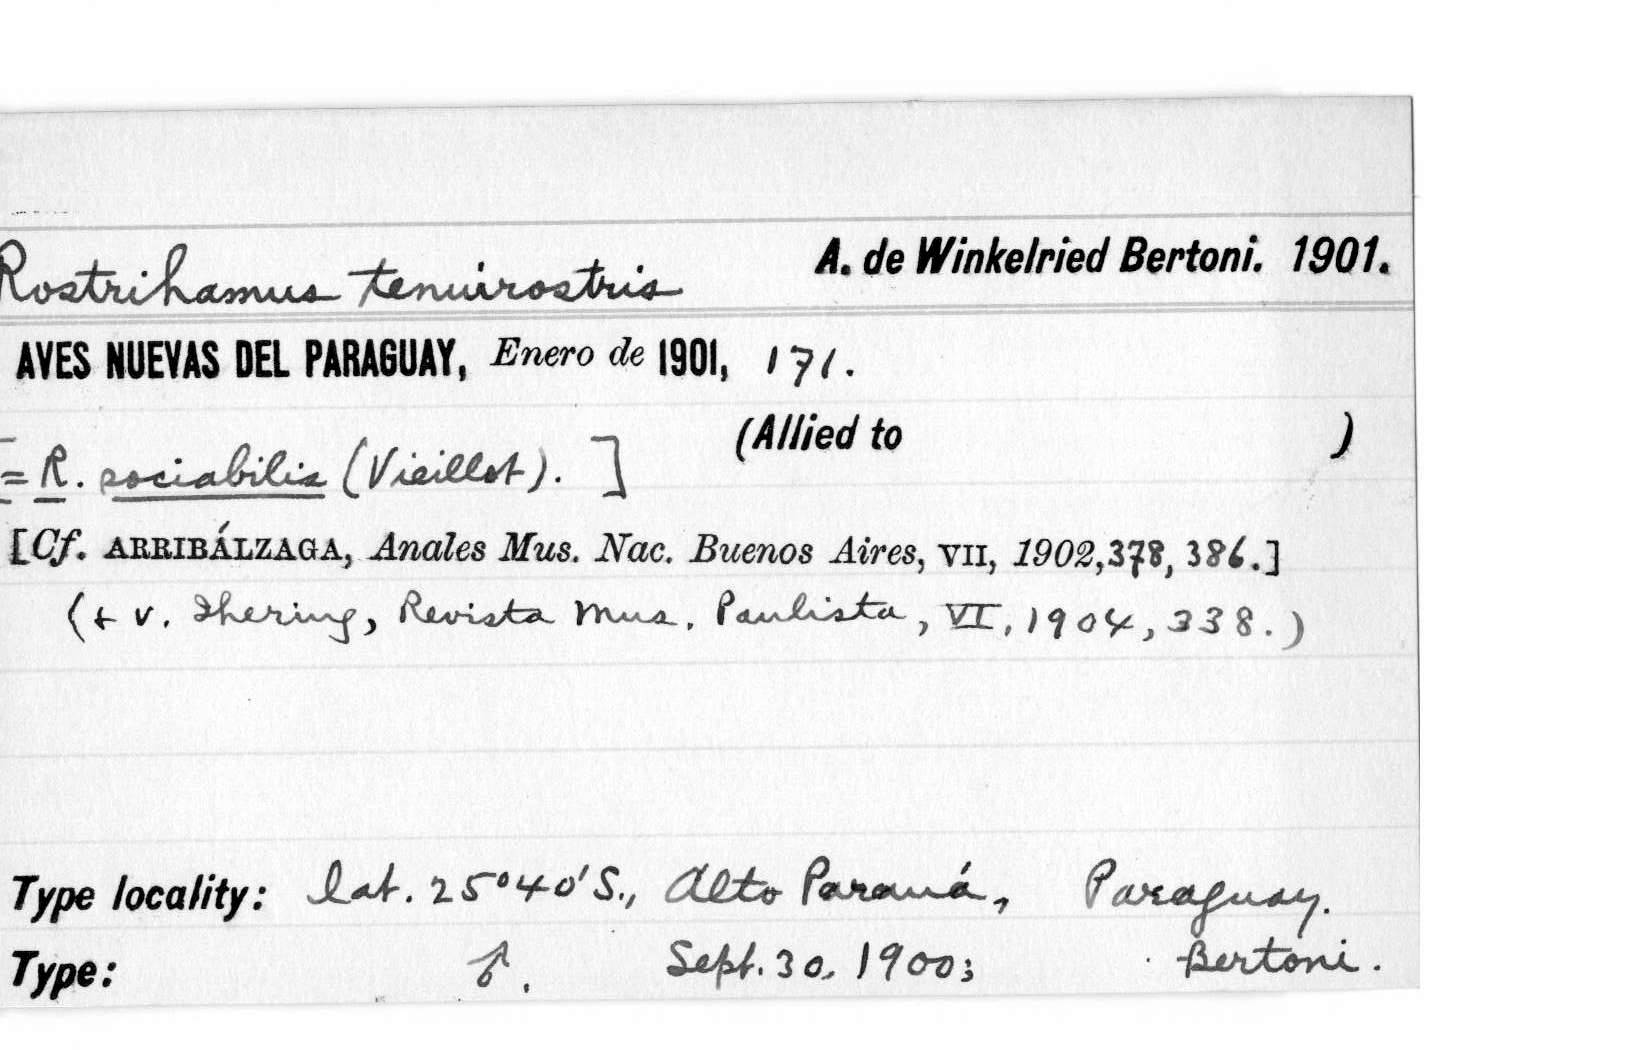 Rostrihamus tenuirostris A. de Winkelried Bertoni. 1901.
AVES NUEVAS DEL PARAGUAY, Enero de 1901, 171.
(Allied to )
[= R. sociabilis (Vieillot). ]
[Cf. ARRIBÁLZAGA, Anales Mus. Nac. Buenos Aires, VII, 1902, 378, 386.]
(+ v. Ihering, Revista Mus. Paulista, VI, 1904, 338.)
Type locality: lat. 25°40'S., Alto Paraná, Paraguay.
Type: ♂. Sept. 30, 1900; Bertoni.